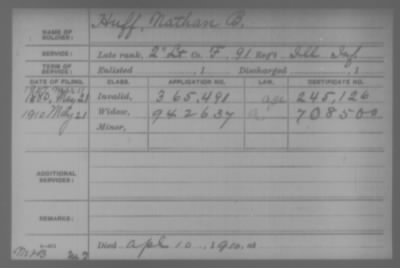 NAME OF SOLDIER: Huff, Nathan B.
SERVICE: Late rank, 2" Lt Co. F, 91 Reg't Ill Inf.
TERM OF SERVICE: Enlisted , 1 Discharged , 1
DATE OF FILING. CLASS. APPLICATION NO. LAW. CERTIFICATE NO.
1880, May 21 Invalid, 365,491 245,126
1910 May 21 Widow, 942637 708500
Minor,
ADDITIONAL SERVICES:
REMARKS:
Died Apl 10, 1910, at